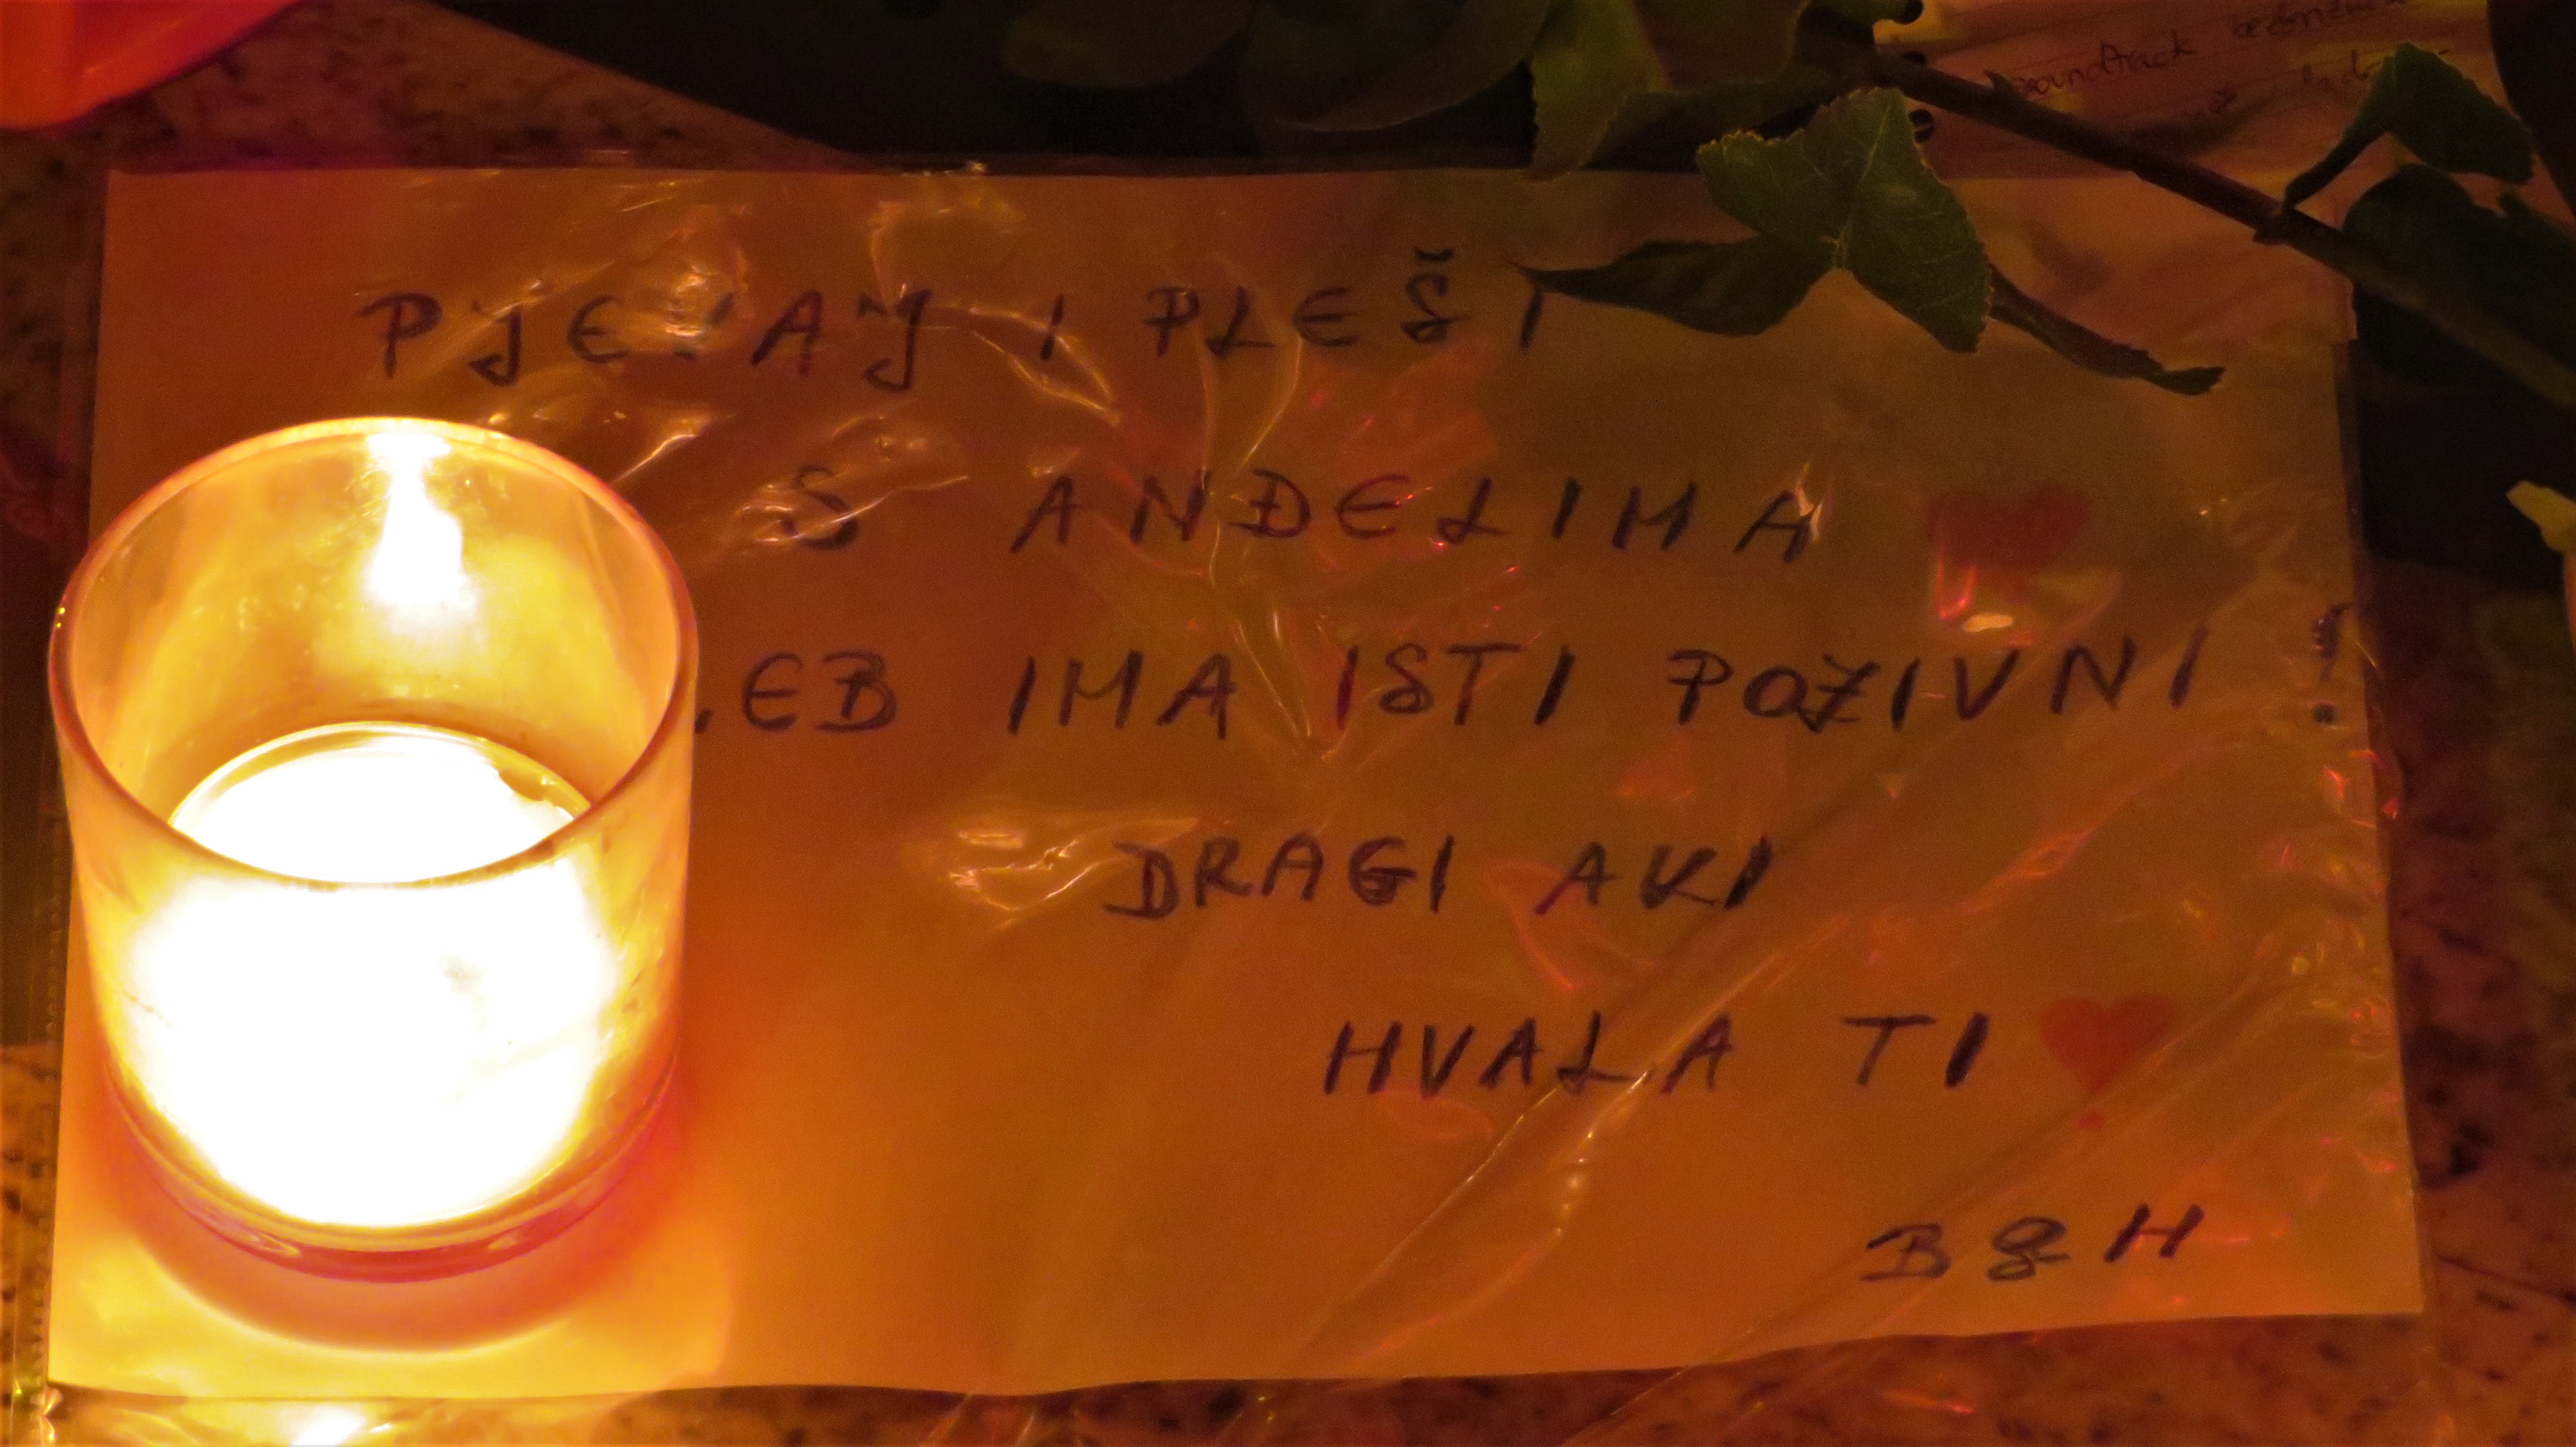 soundtrack
PJEVAJ I PLEŠI
S ANĐELIMA
IMA ISTI POZIVNI !
DRAGI AKI
HVALA TI
B & H